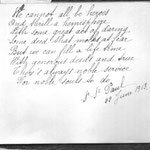 We cannot all be heroes
And thrill a hemisphere
With some great act of daring,
Some deed that mocks at fear.
But we can fill a life time
With generous deeds and true
There's always noble service
For noble souls to do.
22 June 1913.